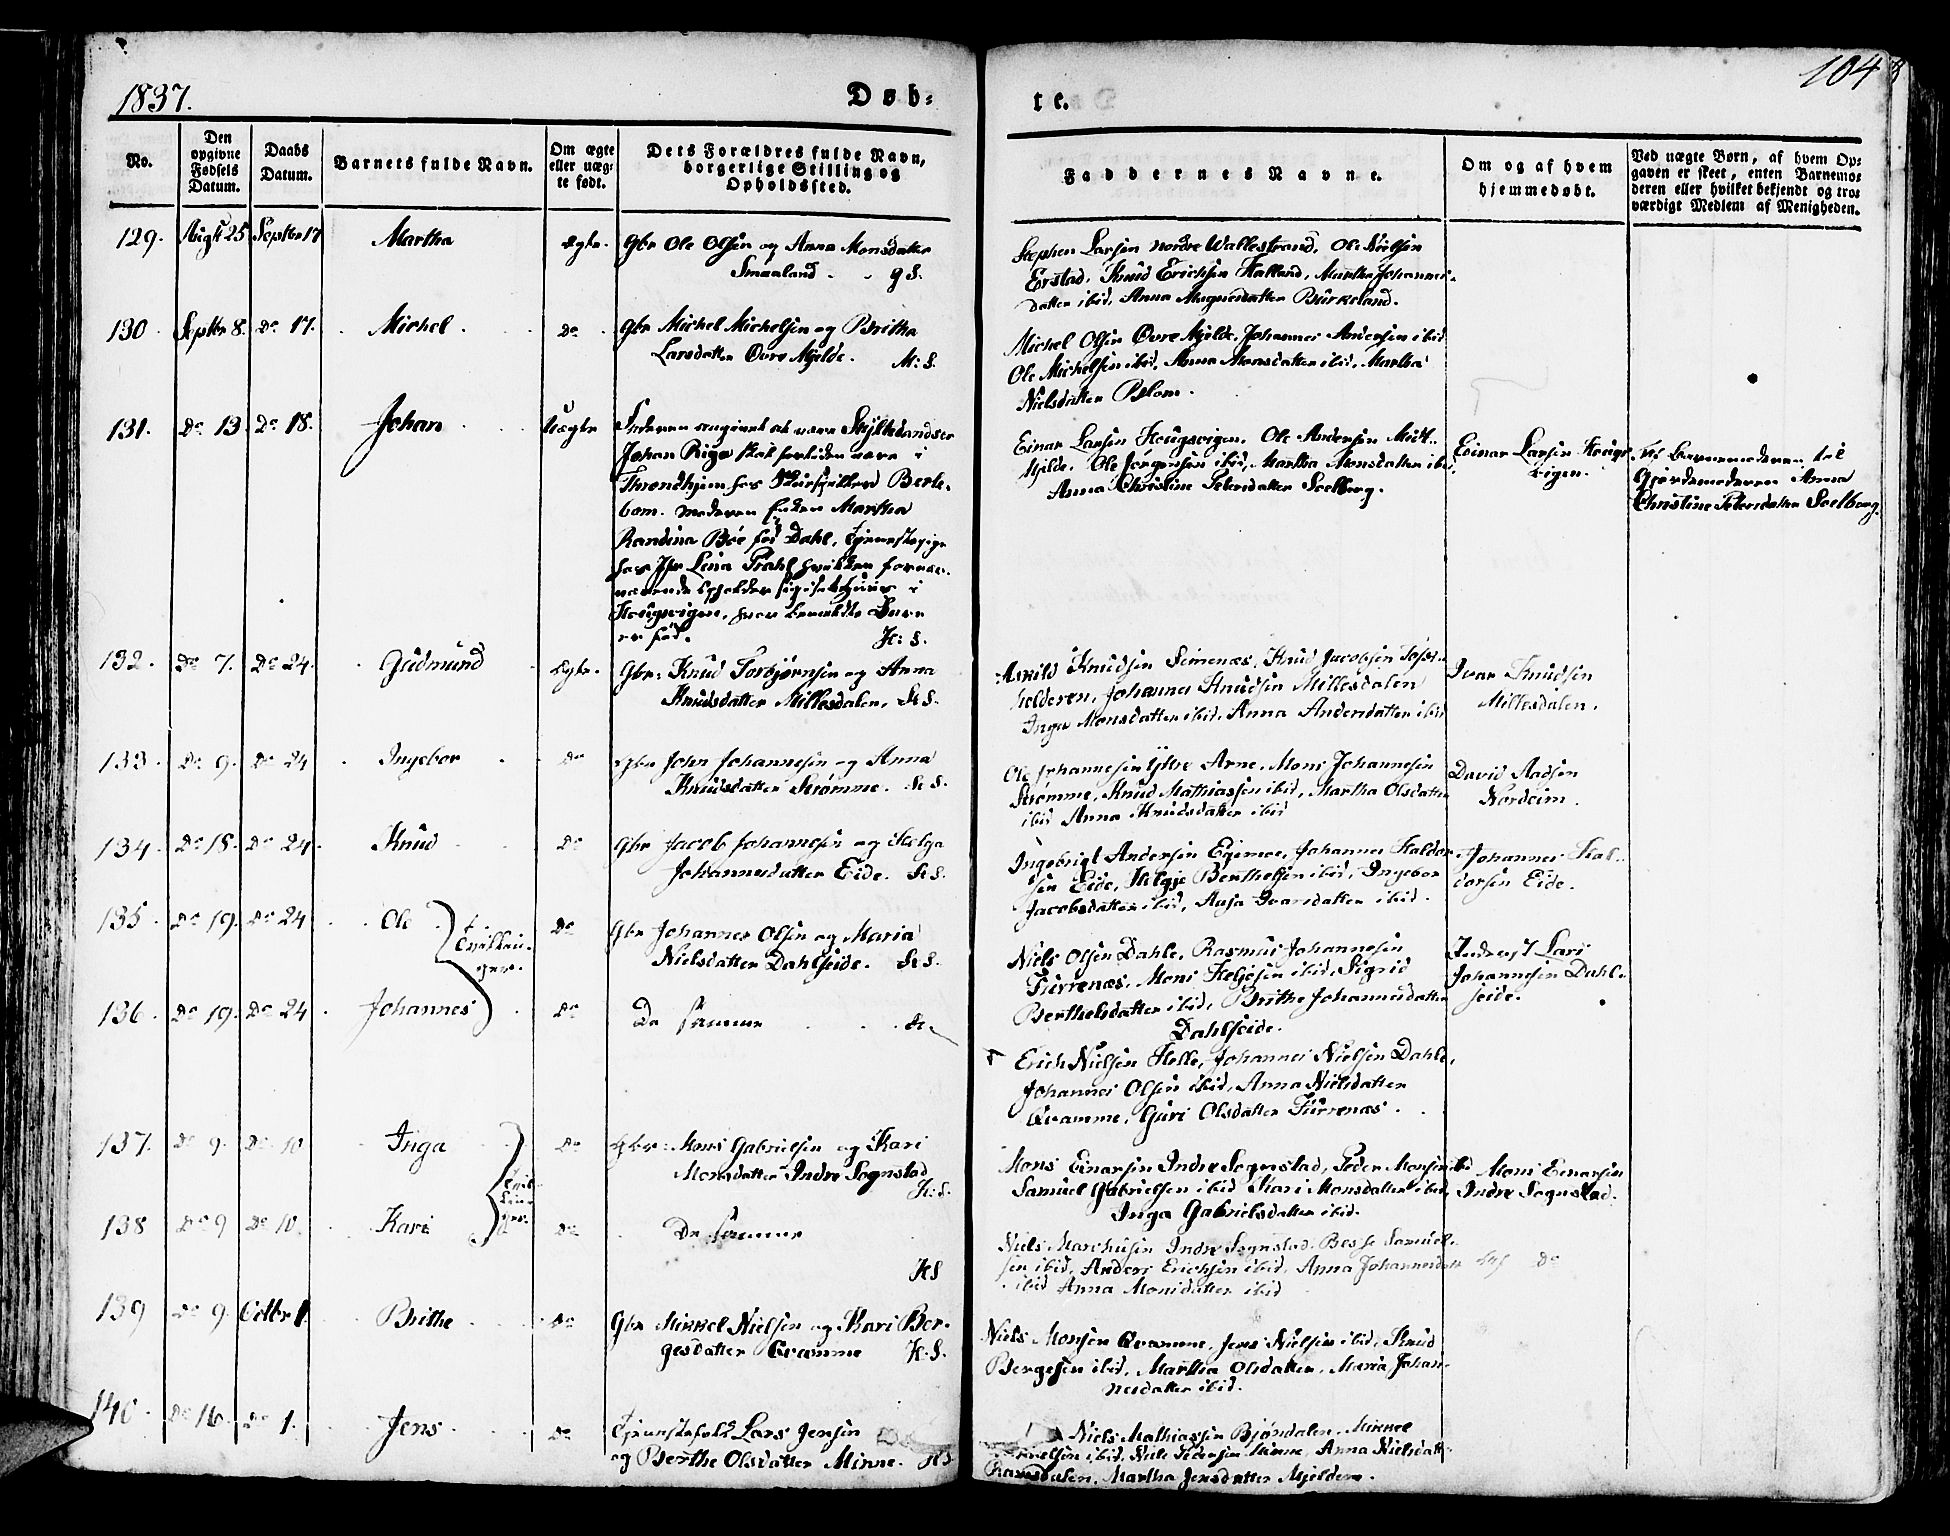 1837.
Døb-
te.
104
No.
Den opgivne Fødsels Datum.
Daabs Datum.
Barnets fulde Navn.
Om ægte eller uægte født.
Dets Forældres fulde Navn, borgerlige Stilling og Opholdssted.
Faddernes Navne.
Om og af hvem hjemmedøbt.
Ved uægte Børn, af hvem Opgaven er skeet, enten Barnemoderen eller hvilket bekjendt og troværdigt Medlem af Menigheden.
129. Augst 25 Septbr 17 Martha Egte. Gbr Ole Olsen og Anna Monsdatter
Smaaland. G S.
Stephen Larsen nordre Wallestrand, Ole Nielsen
Erstad, Knud Erichsen Halland, Martha Johannes-
datter ibid, Anna Magnesdatter Burkeland.
130 Septbr 8. Do 17. Michel Do Gbr Michel Michelsen og Britha
Larsdatter Øvre Mjelde. H: S.
Michel Olsen Øvre Mjelde, Johannes Andersen ibid
Ole Michelsen ibid, Anna Monsdatter ibid, Martha
Nielsdatter Blom.
131. Do 13 Do 18. Johan Uægte Faderen angivet at være
Johan Riga skal forhen være i
Throndhjem hos
Moderen Enken Martha
Randina Bøe fød Dahl, 
hos Jfr Lina Prahl hvilken fornær-
værende opholder sig i sit Huus i
Hougsvigen, hvor bemeldte Barn
er fød. H: S.
Einar Larsen Hougsvigen, Ole Andersen Midt-
Mjelde, Ole Jørgensen ibid, Martha Monsdatter ibid,
Anna Christine Petersdatter Soelberg.
Einar Larsen Hougs-
vigen.
Af Barnemoderen til
Gjordemoderen Anna
Christine Petersdatter Soelberg.
132. Do 7. Do 24. Gudmund Egte. Gbr: Knud Torbjørnsen og Anna
Knudsdatter Millesdalen, H S.
Arnild Knudsen Seimenæs, Knud Jacobsen
Johannes Knudsen Millesdalen
Inga Monsdatter ibid, Anna Andersdatter ibid
Ivar Knudsen
Millesdalen.
133. Do 9. Do 24 Ingebor Do Gbr John Johannesen og Anna
Knudsdatter Strømme. H S.
Ole Johannesen Yttre Arne, Mons Johannesen
Strømme, Knud Mathiassen ibid, Martha Olsdatter
ibid Anna Knudsdatter ibid
David Aadsen
Nordeim.
134. Do 18. Do 24. Knud Do Gbr Jacob Johannesen og Helga
Johannesdatter Eide. H S.
Ingebrigt Andersen Egemoe, Johannes Haldor-
sen Eide, Helgje Berthelsen ibid, Ingebor
Jacobsdatter ibid, Aasa Ivarsdatter ibid.
Johannes Hal-
dorsen Eide.
135 Do 19. Do 24 Ole Tvillin-
ger. Do Gbr Johannes Olsen og Maria
Nielsdatter Dahlseide. H S.
Niels Olsen Dahle, Rasmus Johannesen
Furrenæs, Mons Heljesen ibid, Sigrid
Berthelsdatter ibid, Brithe Johannesdatter
Dahlseide.
Lars
Johannesen Dahl-
seide.
136. Do 19. Do 24. Johannes Do De samme H.
Erich Nielsen Helle, Johannes Nielsen Dahle,
Johannes Olsen ibid, Anna Nielsdatter
Qvamme, Guri Olsdatter Furrenæs.
137. Do 9. Do 10 Inga Tvil-
linger. Do Gbr: Mons Gabrielsen og Kari
Monsdatter Indre Sognstad
H: S.
Mons Einarsen Indre Sognstad, Peder Monsen ibid
Samuel Gabrielsen ibid Kari Monsdatter ibid,
Inga Gabrielsdatter ibid.
Mons Einarsen
Indre Sognstad.
138 Do 9 Do 10. Kari Do De samme
H S
Niels Marchusen Indre Sognstad, Besse Samuel-
sen ibid, Anders Erichsen ibid, Anna Johannesdatt
ibid Anna Monsdatter ibid
af Do
139 Do 9. Octbr 1. Brithe Do Gbr Mikkel Nielsen og Kari Ber-
gesdatter Qvamme H: S.
Niels Monsen Qvamme, Jens Nielsen ibid, Knud
Bergesen ibid, Martha Olsdatter, Maria Johan-
nesdatter ibid.
140. Do 16. Do 1. Jens Do Tjenestefolk Lars Jensen
og Berthe Olsdatter Minne. H S
Niels Mathiassen Bjøndalen, Mikkel
ibid, Niels Pedersen Minne, Anna Nielsdatt-
Ramsdalen, Martha Jensdatter Mjelder.